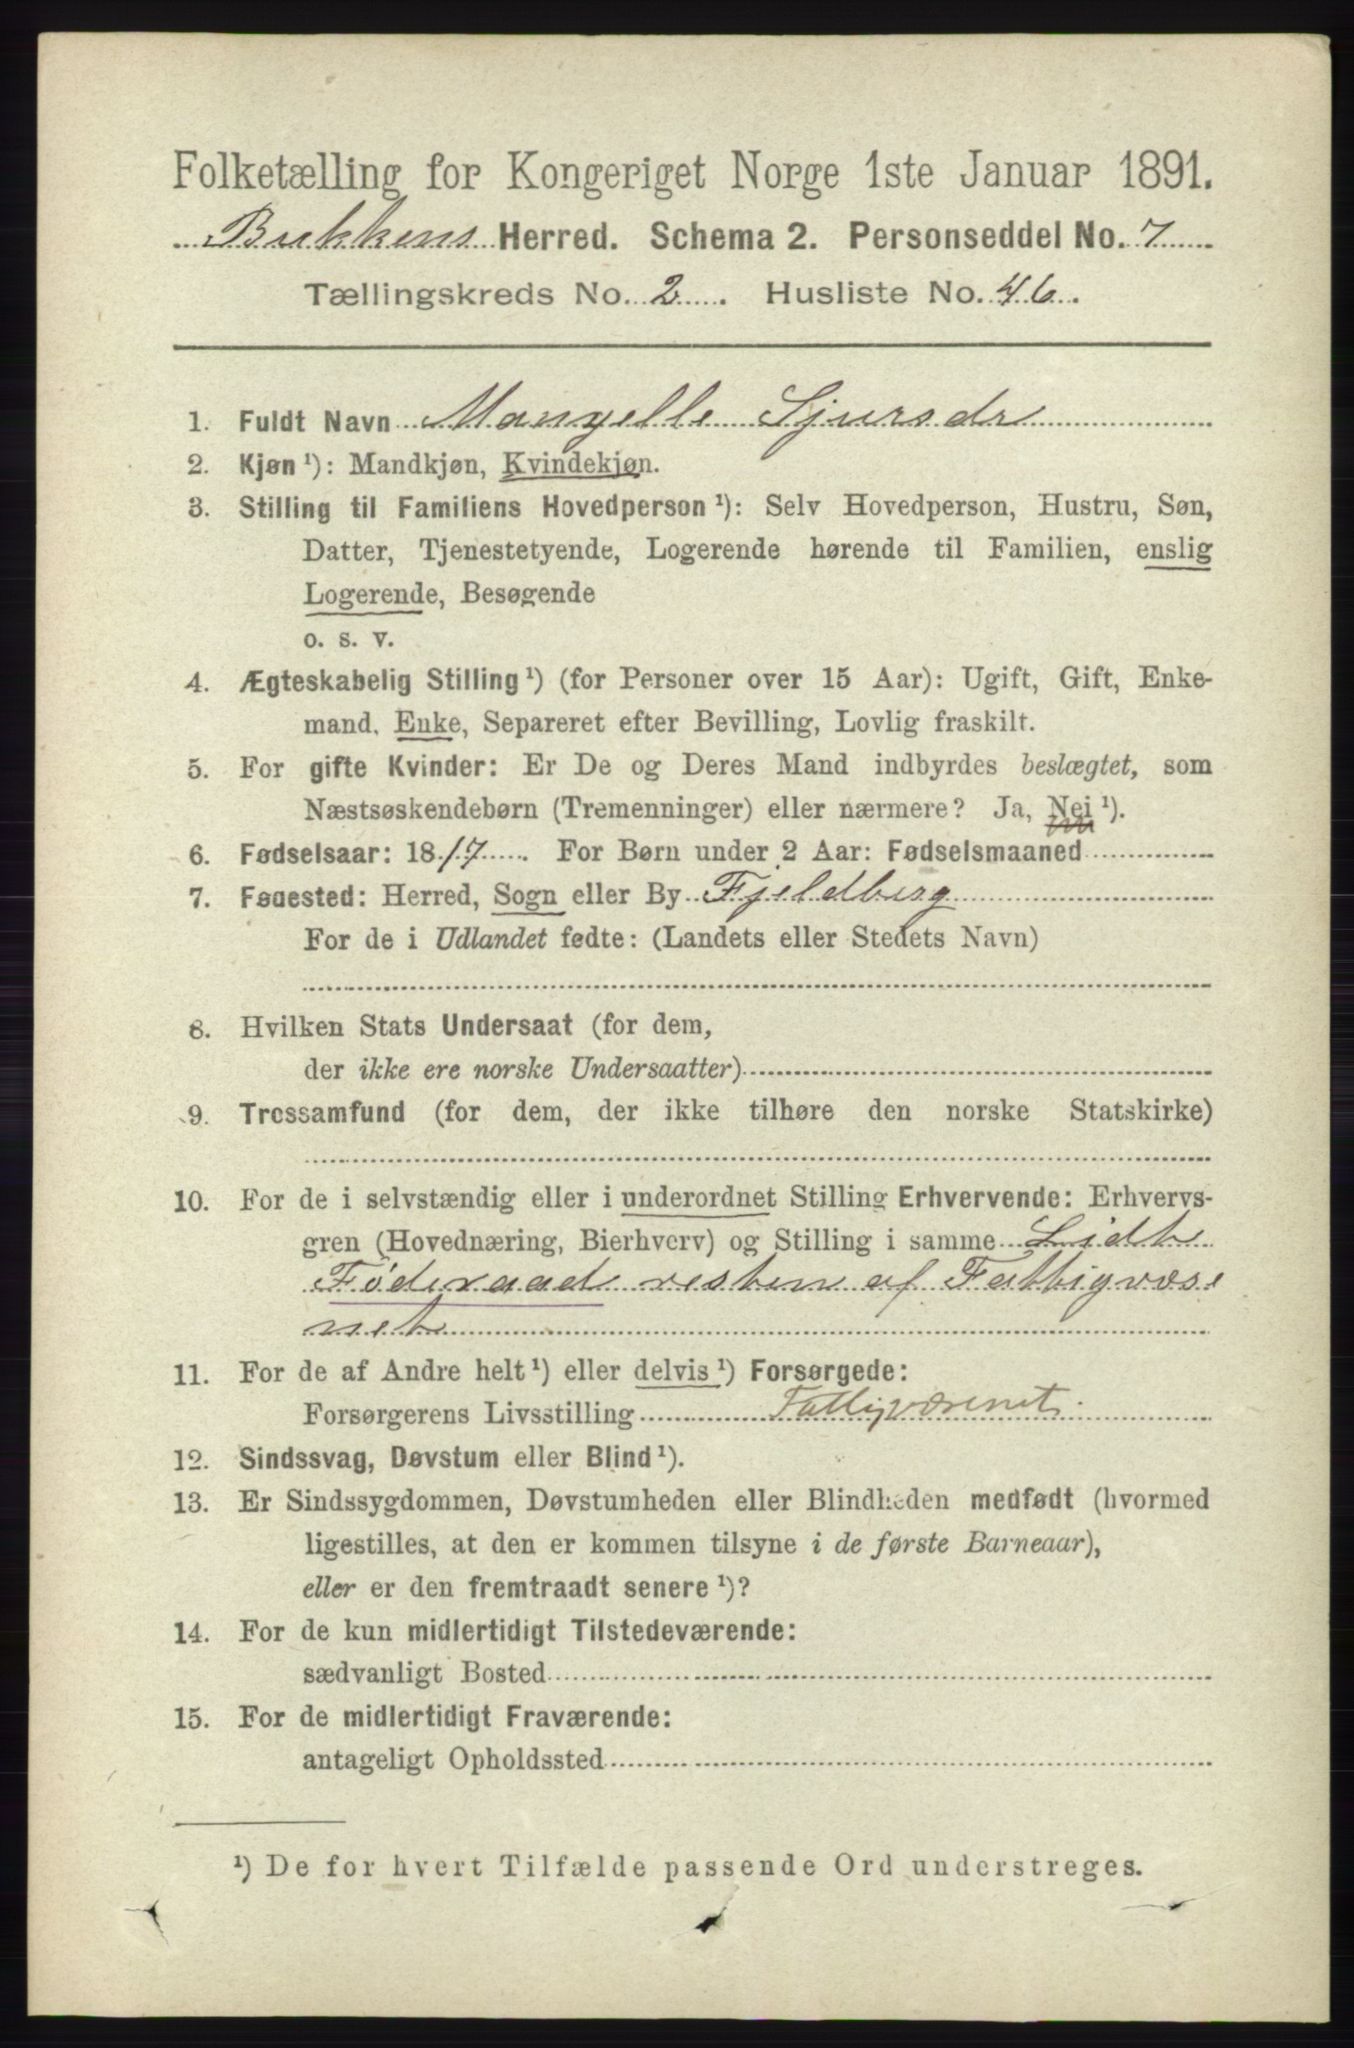 Folketælling for Kongeriget Norge 1ste Januar 1891.
Bukkens Herred. Schema 2. Personseddel No. 7
Tællingskreds No. 2. Husliste No. 46.
1. Fuldt Navn Mangelle Sjursdr
2. Kjøn ¹): Mandkjøn, Kvindekjøn.
3. Stilling til Familiens Hovedperson ¹): Selv Hovedperson, Hustru, Søn,
Datter, Tjenestetyende, Logerende hørende til Familien, enslig
Logerende, Besøgende
o. s. v.
4. Ægteskabelig Stilling ¹) (for Personer over 15 Aar): Ugift, Gift, Enke-
mand, Enke, Separeret efter Bevilling, Lovlig fraskilt.
5. For gifte Kvinder: Er De og Deres Mand indbyrdes beslægtet, som
Næstsøskendebørn (Tremenninger) eller nærmere? Ja, Nei ¹).
6. Fødselsaar: 1817. For Børn under 2 Aar: Fødselsmaaned
7. Fødested: Herred, Sogn eller By Fjeldberg
For de i Udlandet fødte: (Landets eller Stedets Navn)
8. Hvilken Stats Undersaat (for dem,
der ikke ere norske Undersaatter)
9. Trossamfund (for dem, der ikke tilhøre den norske Statskirke)
10. For de i selvstændig eller i underordnet Stilling Erhvervende: Erhvervs-
gren (Hovednæring, Bierhverv) og Stilling i samme Lidt
Føderaad resten af Fattigvæse
net
11. For de af Andre helt ¹) eller delvis ¹) Forsørgede:
Forsørgerens Livsstilling Fattigvæsenet.
12. Sindssvag, Døvstum eller Blind ¹).
13. Er Sindssygdommen, Døvstumheden eller Blindheden medfødt (hvormed
ligestilles, at den er kommen tilsyne i de første Barneaar),
eller er den fremtraadt senere ¹)?
14. For de kun midlertidigt Tilstedeværende:
sædvanligt Bosted
15. For de midlertidigt Fraværende:
antageligt Opholdssted
¹) De for hvert Tilfælde passende Ord understreges.